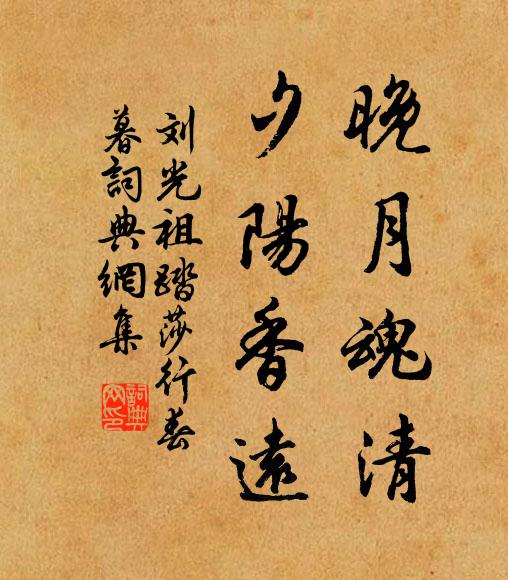 晚月魂清
夕陽香遠
刘光祖踏莎行春
暮詞典網集
詞典
网印